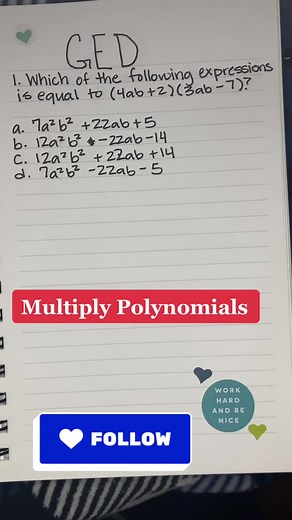 GED
1. Which of the following expressions
is equal to (4ab+2)(3ab-7)?
a. 7a²b² +22ab+5
b. 12a²b² -22ab-14
c. 12a²b² +22ab+14
d. 7a²b² -22ab-5
Multiply Polynomials
WORK
HARD
AND BE
NICE
FOLLOW